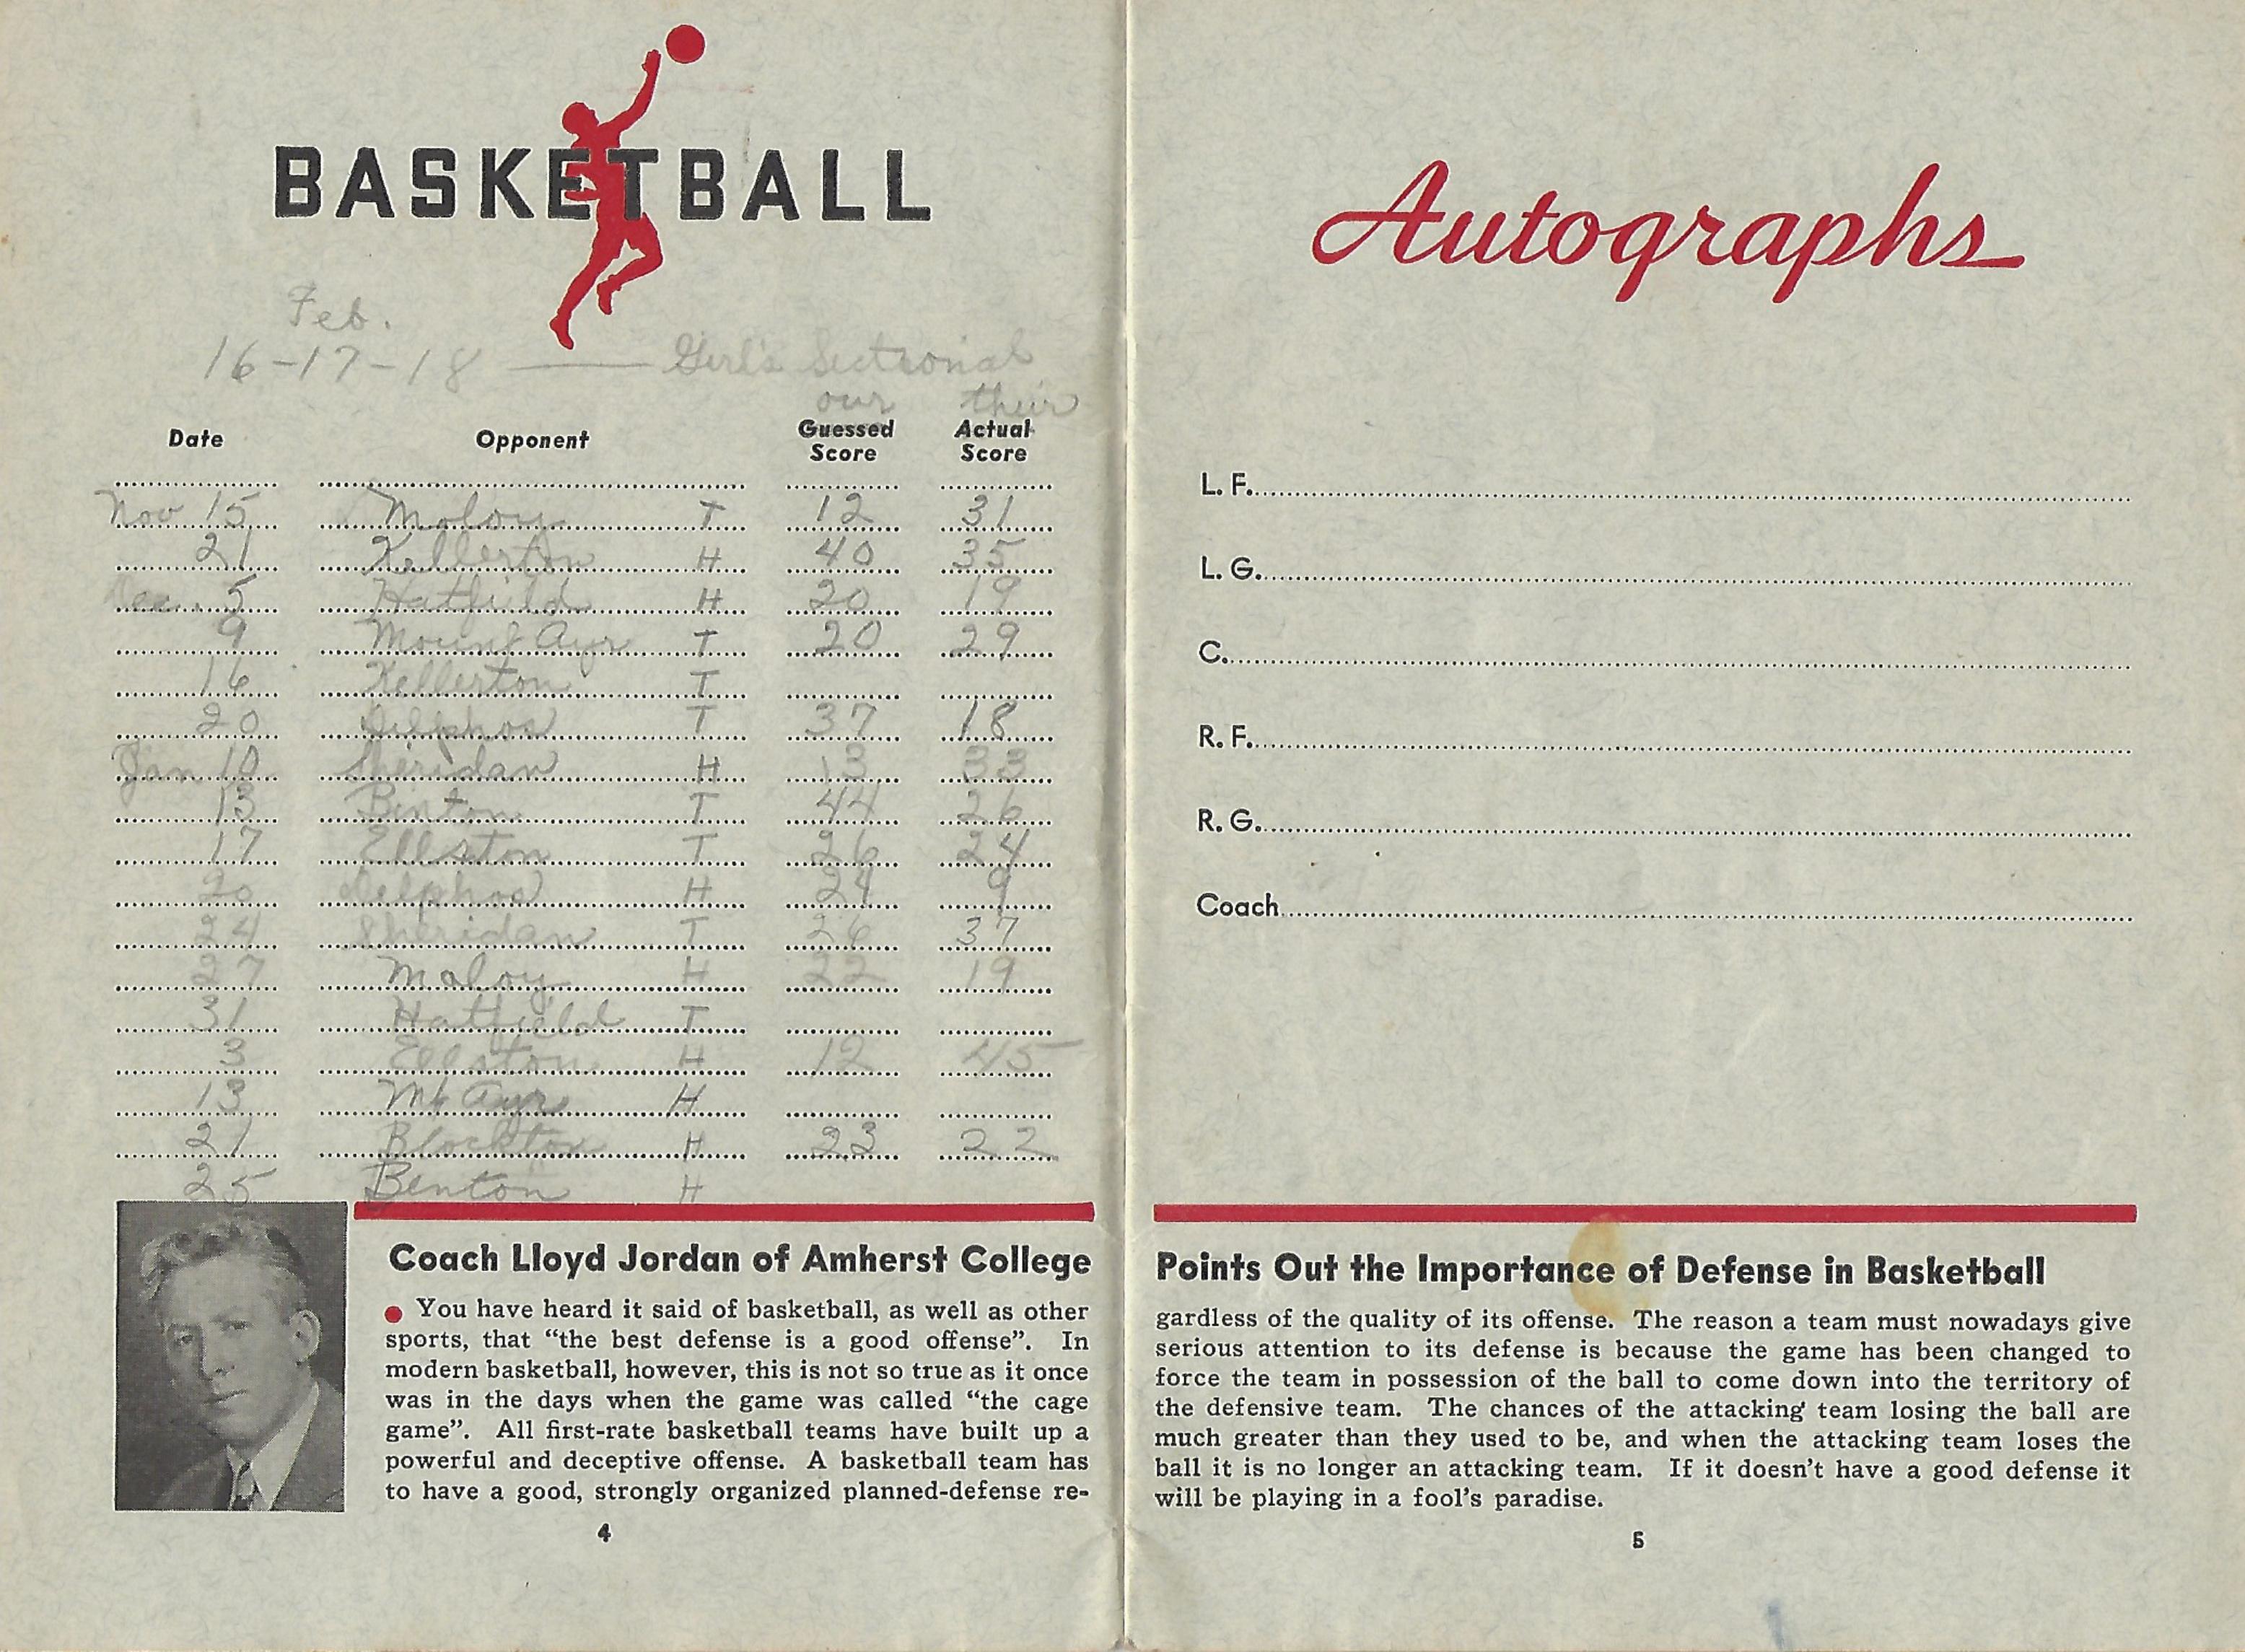 BASKETBALL
Feb.
16-17-18 — Girl's Sectional
our their
Date Opponent Guessed Score Actual Score
Nov 15 Moloy T 12 31
21 Kellerton H 40 35
Dec. 5 Hatfield H 20 19
9 Mount Ayr T 20 29
16 Kellerton T
20 Delphos T 37 18
Jan 10 Sheridan H 13 33
13 Benton T 44 26
17 Ellston T 26 24
20 Delphos H 24 9
24 Sheridan T 26 37
27 Maloy H 22 19
31 Hatfield T
3 Ellston H 12 45
13 Mt Ayr H
21 Blockton H 23 22
25 Benton H
Coach Lloyd Jordan of Amherst College
You have heard it said of basketball, as well as other
sports, that “the best defense is a good offense”. In
modern basketball, however, this is not so true as it once
was in the days when the game was called “the cage
game”. All first-rate basketball teams have built up a
powerful and deceptive offense. A basketball team has
to have a good, strongly organized planned-defense re-
4
Autographs
L. F.
L. G.
C.
R. F.
R. G.
Coach
Points Out the Importance of Defense in Basketball
gardless of the quality of its offense. The reason a team must nowadays give
serious attention to its defense is because the game has been changed to
force the team in possession of the ball to come down into the territory of
the defensive team. The chances of the attacking team losing the ball are
much greater than they used to be, and when the attacking team loses the
ball it is no longer an attacking team. If it doesn't have a good defense it
will be playing in a fool's paradise.
5